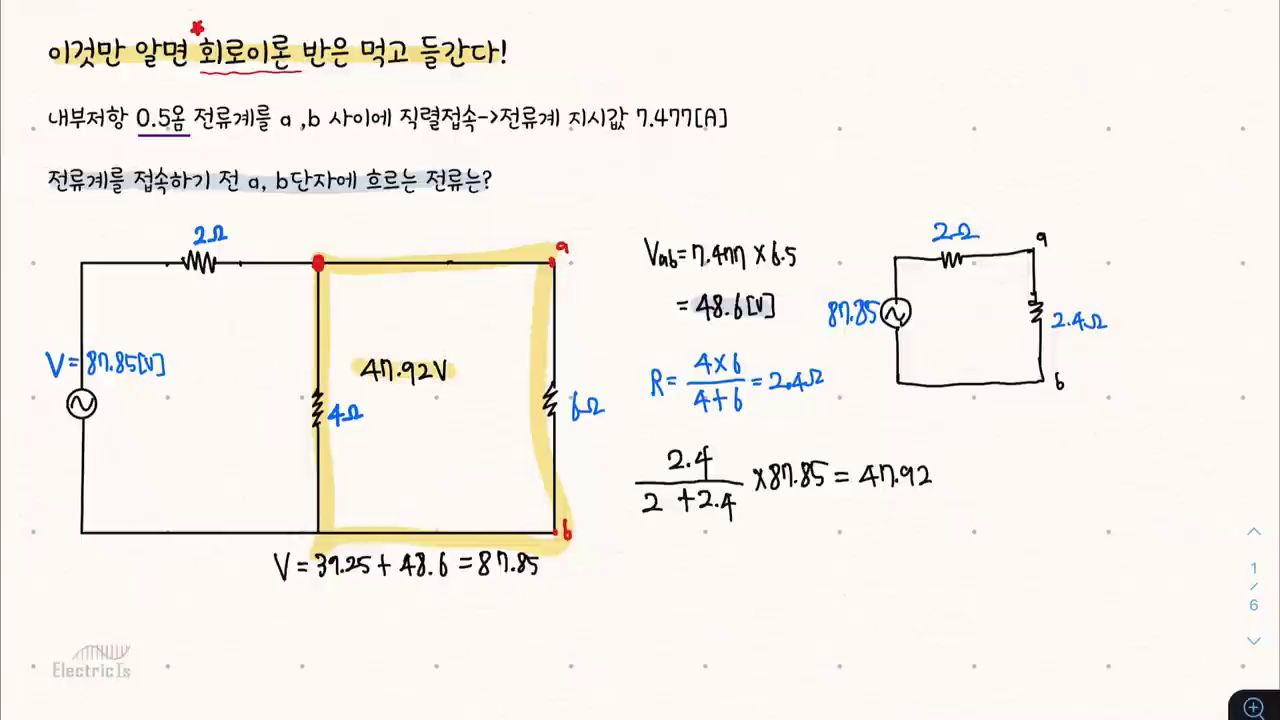 이것만 알면 회로이론 반은 먹고 들간다!
내부저항 0.5옴 전류계를 a ,b 사이에 직렬접속->전류계 지시값 7.477[A]
전류계를 접속하기 전 a, b단자에 흐르는 전류는?
2Ω
a
V=87.85[V]
47.92V
4Ω
6Ω
b
V=39.25+48.6=87.85
Vab=7.477×6.5
=48.6[V]
R=4×6/4+6=2.4Ω
2.4/2+2.4×87.85=47.92
2Ω
a
87.85
2.4Ω
b
1
/
6
Electric Is